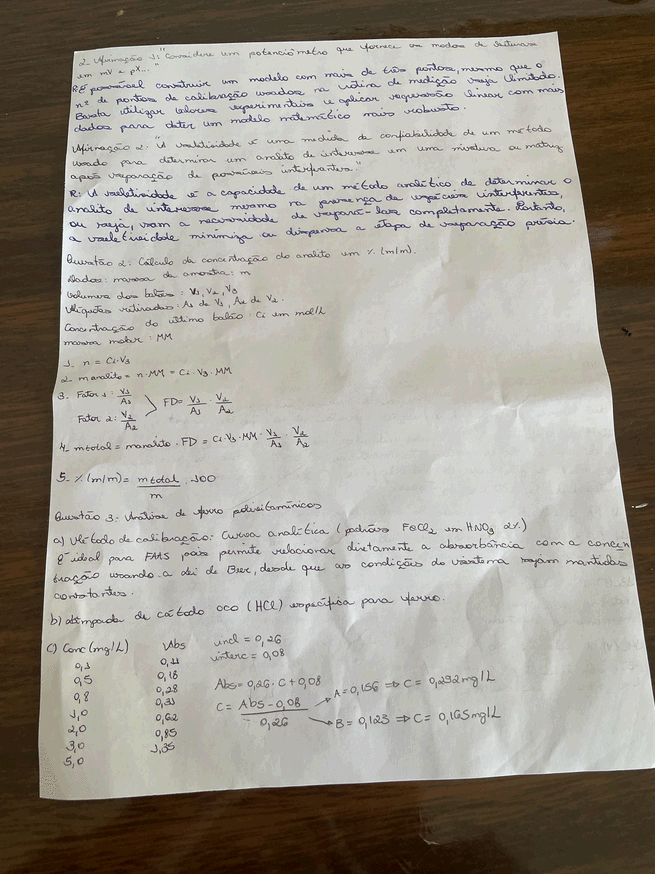 2- Afirmação 1: "Considere um potenciômetro que fornece os modos de leituras
em mV e pX..."
R: É possível construir um modelo com mais de três pontos, mesmo que o
nº de pontos de calibração usados na rotina de medição seja limitado.
Basta utilizar valores experimentais e aplicar regressão linear com mais
dados para obter um modelo matemático mais robusto.
Afirmação 2: "A seletividade é uma medida de confiabilidade de um método
usado para determinar um analito de interesse em uma mistura ou matriz
após separação de possíveis interferentes."
R: A seletividade é a capacidade de um método analítico de determinar o
analito de interesse mesmo na presença de espécies interferentes,
ou seja, sem a necessidade de separá-las completamente. Portanto,
a seletividade minimiza ou dispensa a etapa de separação prévia.
Questão 2: Cálculo da concentração do analito em % (m/m).
Dados: massa da amostra: m
Volumes dos balões: V1, V2, V3
Alíquotas retiradas: A1 de V1, A2 de V2.
Concentração do último balão: Ci em mol/L
massa molar: MM
1- n = Ci.V3
2- manalito = n.MM = Ci.V3.MM
3- Fator 1: V1/A1
Fator 2: V2/A2
FD = V1/A1 . V2/A2
4- mtotal = manalito . FD = Ci.V3.MM . V1/A1 . V2/A2
5- % (m/m) = mtotal/m . 100
Questão 3: Análise de ferro polivitamínicos
a) Método de calibração: Curva analítica (padrões FeCl2 em HNO3 2%)
É ideal para FAAS pois permite relacionar diretamente a absorbância com a concen
tração usando a lei de Beer, desde que as condições do sistema sejam mantidas
constantes.
b) Lâmpada de cátodo oco (HCl) específica para ferro.
c) Conc (mg/L) Abs
0,1 0,11
0,5 0,18
0,8 0,28
1,0 0,31
2,0 0,62
3,0 0,85
5,0 1,35
incl = 0,26
interc = 0,08
Abs = 0,26 . C + 0,08
C = Abs - 0,08 / 0,26
A = 0,156 ⇒ C = 0,292 mg/L
B = 0,123 ⇒ C = 0,165 mg/L